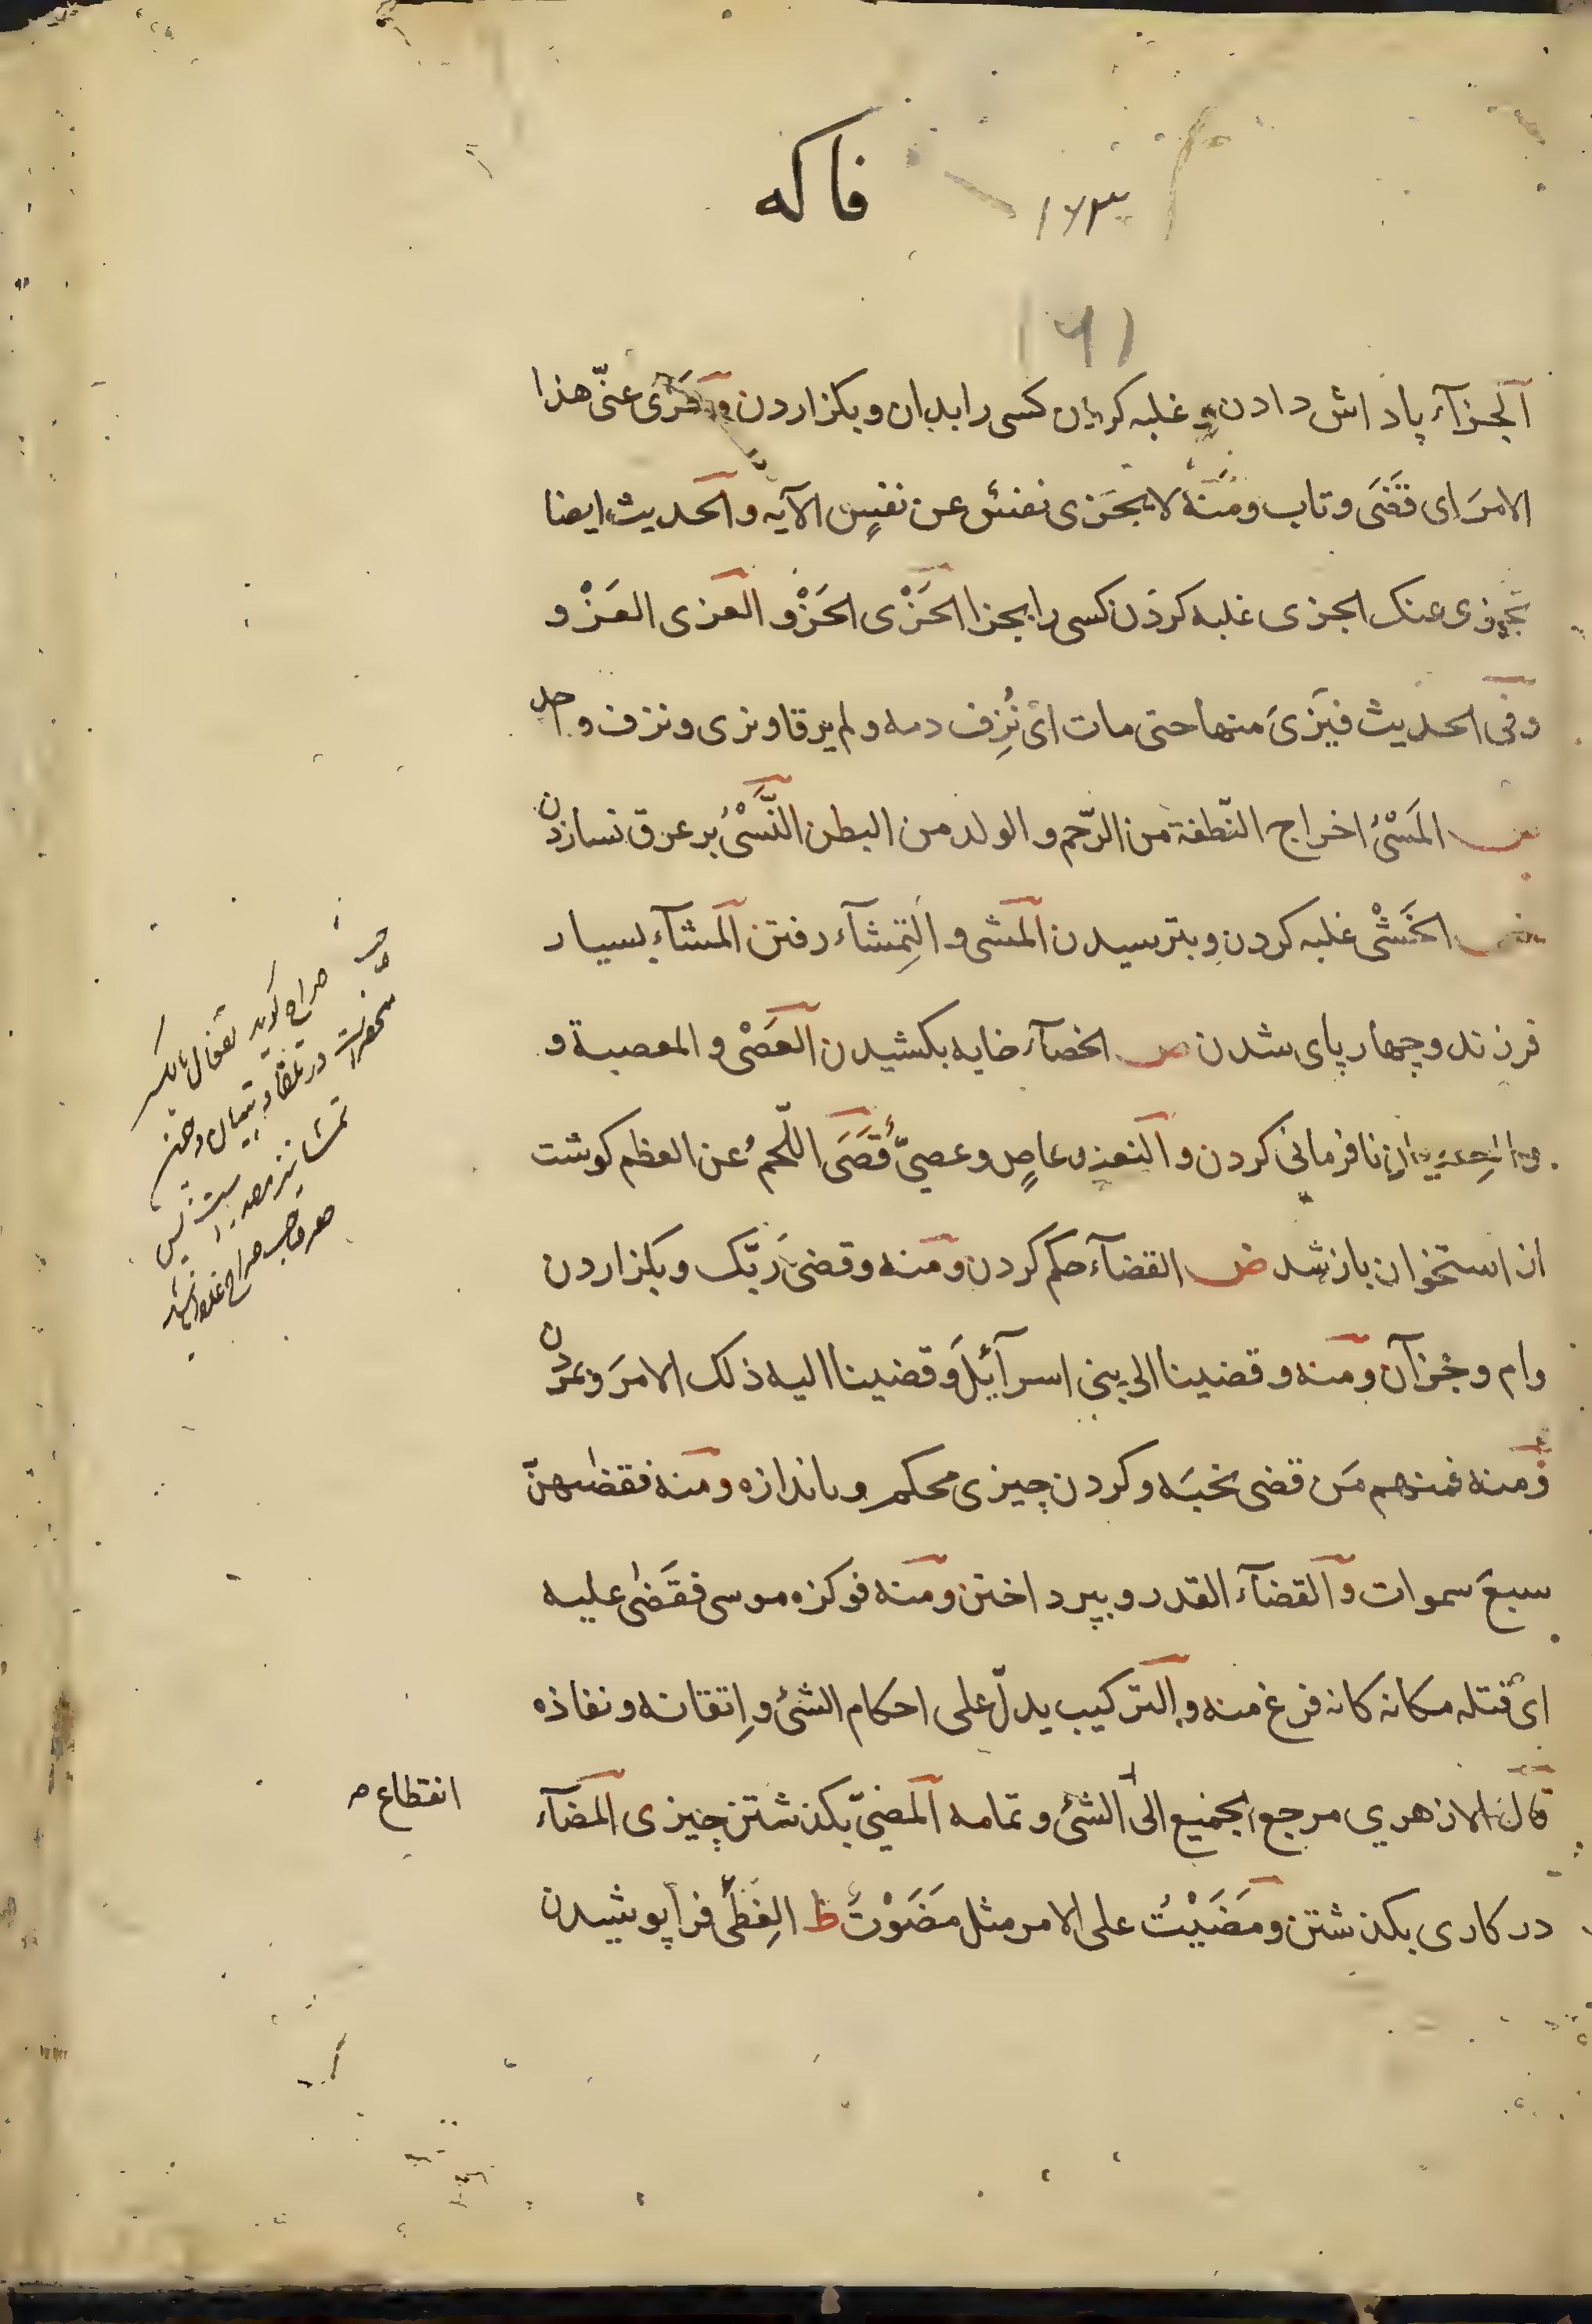 فاكه
١٦١
آلجزآء پاداش دادن و غلبه كردن كسی را بدان و بكزاردن و جَزَی عنّی هذا
الامرَ ای قَضَی و تاب ومنهُ لا يَجَزی نفسٌ عن نفسٍ الآيه والحديث ايضا
تجزی عنك الجزی غلبه كردن كسی را بجزا الحَزْی الحَزْو العزی العَزْو
وفی الحديث فيَزیَ منها حتی مات ایْ نُزِف دمه ولم يرقا ونزی ونزف واحد
س المَسْیُ اخراج النّطفة من الرّحم والولد من البطن النَّسْیُ بر عرق نسا زدن
ش الخَشْی غلبه كردن و بترسيدن المشی والتِمشآء رفتن المشآء بسيار
فرزند و چهارپای شدن ص الخصآء خايه بكشيدن العَصْی والمعصية و
نافرمانی كردن و النعت عاصٍ وعصیّ قُصَیَ اللّحمُ عن العظم كوشت
از استخوان باز شد ض القضآء حكم كردن ومنه وقضیَ رَبّك و بكزاردن
وام و جُز آن ومنه وقضينا الی بنی اسرآئلَ وقضينا اليه ذلك الامرَ و بمردن
ومنه فمنهم مَن قضی نحبَه و كردن چيزی محكم و باندازه ومنه فقضٰهنّ
سبعَ سموات والقضآء القدر و بپرداختن ومنه فوكزه موسی فقَضٰی عليه
ایْ قتله مكانه كانه فرغ منه والتركيب يدلّ علی احكام الشیٔ واِتقانه ونفاذه
قال الازهري مرجع الجميع الی الشیٔ وتمامه المضیّ بكذشتن چيزی المضآء
انقطاع ص
در كاری بكذشتن ومَضَيْتُ علی الامر مثل مَضَوْتُ ظ الغِطیُ فراپوشيدن